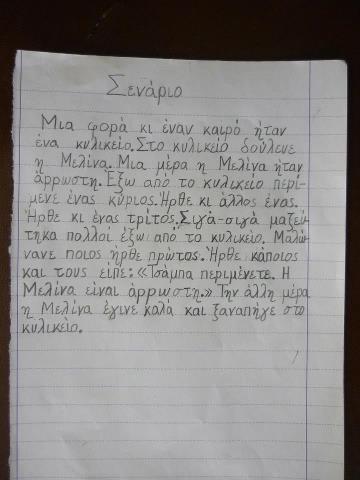 Σενάριο
Μια φορά κι έναν καιρό ήταν
ένα κυλικείο. Στο κυλικείο δούλευε
η Μελίνα. Μια μέρα η Μελίνα ήταν
άρρωστη. Έξω από το κυλικείο περί-
μενε ένας κύριος. Ήρθε κι άλλος ένας.
Ήρθε κι ένας τρίτος. Σιγά-σιγά μαζεύ-
τηκα πολλοί έξω από το κυλικείο. Μαλώ-
νανε ποιος ήρθε πρώτος. Ήρθε κάποιος
και τους είπε: «Τσάμπα περιμένετε. Η
Μελίνα είναι άρρωστη.» Την άλλη μέρα
η Μελίνα έγινε καλά και ξαναπήγε στο
κυλικείο.